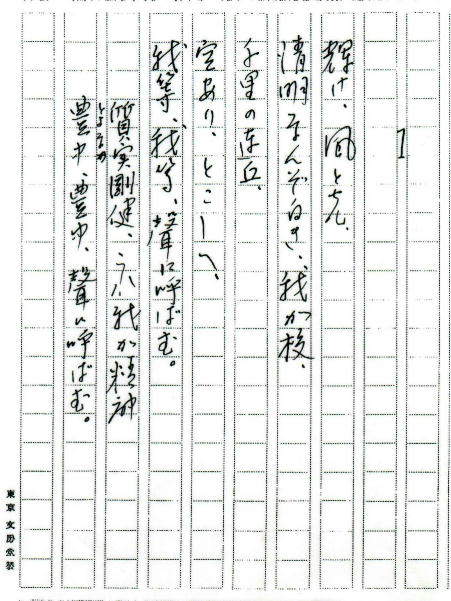 1
輝け、風と光、
清明なんぞ白き、我が校、
千里の連丘、
空あり、とこしへ、
我等、我等、聲に呼ばむ。
質実剛健、我が精神
とよなか
豊中、豊中、聲に呼ばむ。
東京 文房堂製